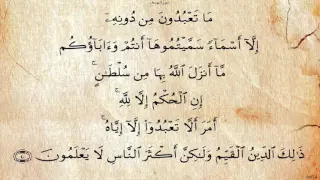 مَا تَعْبُدُونَ مِن دُونِهِۦٓ
إِلَّآ أَسْمَآءً سَمَّيْتُمُوهَآ أَنتُمْ وَءَابَآؤُكُم
مَّآ أَنزَلَ ٱللَّهُ بِهَا مِن سُلْطَـٰنٍ ۚ
إِنِ ٱلْحُكْمُ إِلَّا لِلَّهِ ۚ
أَمَرَ أَلَّا تَعْبُدُوٓا۟ إِلَّآ إِيَّاهُ ۚ
ذَٰلِكَ ٱلدِّينُ ٱلْقَيِّمُ وَلَـٰكِنَّ أَكْثَرَ ٱلنَّاسِ لَا يَعْلَمُونَ ٤٠